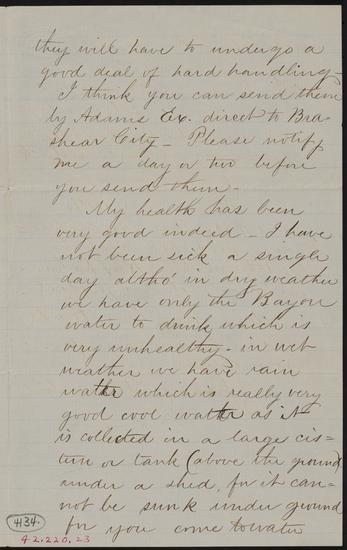 they will have to undergo a
good deal of hard handling_
I think you can send them
by Adams Ex. direct to Bra-
shear City_ Please notify
me a day or two before
you send them_
My health has been
very good indeed_ I have
not been sick a single
day altho' in dry weather
we have only the Bayou
water to drink which is
very unhealthy_ in wet
weather we have rain
water which is really very
good cool water as it
is collected in a large cis=
tern or tank (above the ground)
under a shed, for it can-
not be sunk under ground
for you come to water
4134.
42.220.23